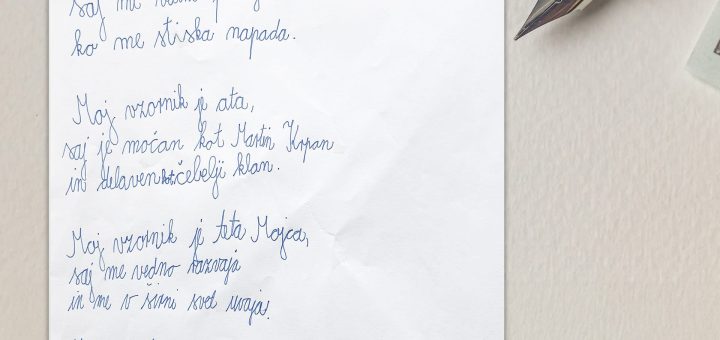 saj me
ko me stiska napada.
Moj vzornik je ata,
saj je močan kot Martin Krpan
in delaven kot čebelji klan.
Moj vzornik je teta Mojca,
saj me vedno razvaja
in me v širni svet uvaja.